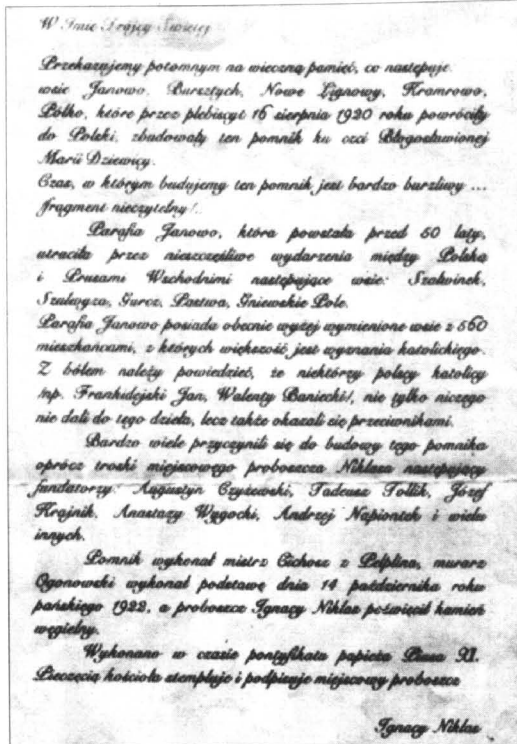 W Imię Trójcy Świętej
Przekazujemy potomnym na wieczną pamięć, co następuje:
wsie Janowo, Bursztych, Nowe Lignowy, Kramrowo,
Pólko, które przez plebiscyt 16 sierpnia 1920 roku powróciły
do Polski, zbudowały ten pomnik ku czci Błogosławionej
Marii Dziewicy.
Czas, w którym budujemy ten pomnik jest bardzo burzliwy ...
/fragment nieczytelny/..
Parafia Janowo, która powstała przed 50 laty,
utraciła przez nieszczęśliwe wydarzenia między Polską
i Prusami Wschodnimi następujące wsie: Szałwinek,
Szałwyza, Gurcz, Pastwa, Gniewskie Pole.
Parafia Janowo posiada obecnie wyżej wymienione wsie z 560
mieszkańcami, z których większość jest wyznania katolickiego.
Z bólem należy powiedzieć, że niektórzy polscy katolicy
/np. Frankidejski Jan, Walenty Baniecki/, nie tylko niczego
nie dali do tego dzieła, lecz także okazali się przeciwnikami.
Bardzo wiele przyczynili się do budowy tego pomnika
oprócz troski miejscowego proboszcza Niklasa następujący
fundatorzy: Augustyn Czyżewski, Tadeusz Tollik, Józef
Krajnik, Anastazy Wygocki, Andrzej Napiontek i wielu
innych.
Pomnik wykonał mistrz Cichosz z Pelplina, murarz
Ogonowski wykonał podstawę dnia 14 października roku
pańskiego 1922, a proboszcz Ignacy Niklas poświęcił kamień
węgielny.
Wykonano w czasie pontyfikatu papieża Piusa XI.
Pieczęcią kościoła stempluje i podpisuje miejscowy proboszcz
Ignacy Niklas